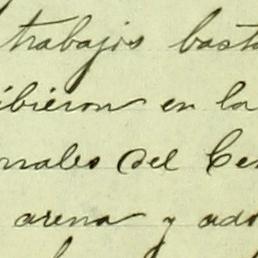 trabajos basta
ibieron en la
nales del Cen
arena y ado